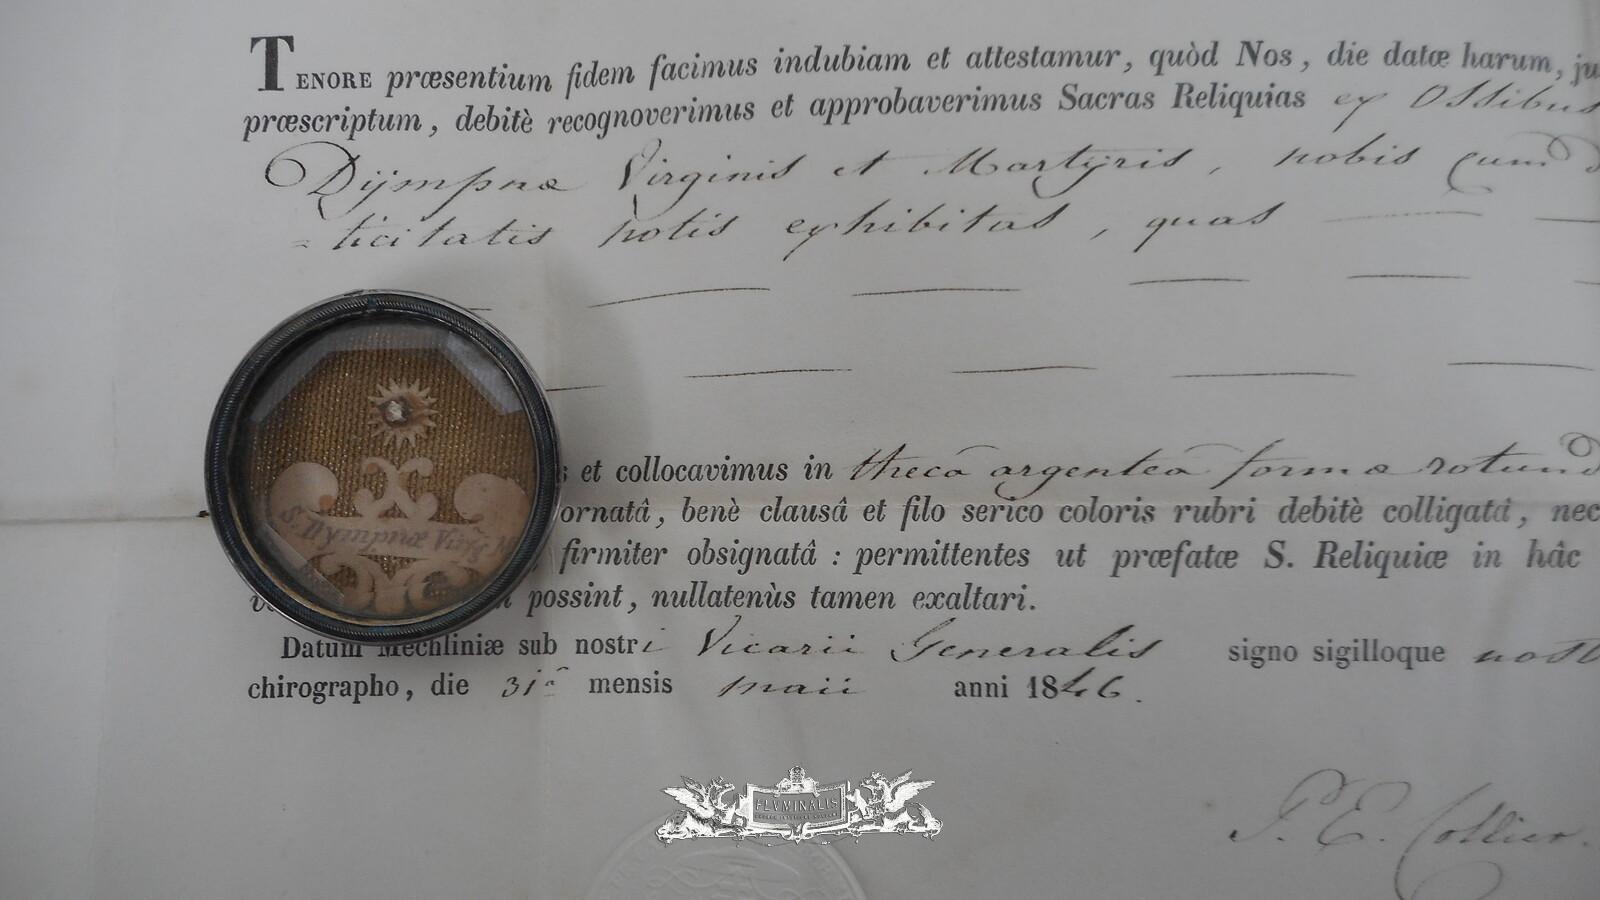 TENORE præsentium fidem facimus indubiam et attestamur, quòd Nos, die datæ harum, ju
præscriptum, debitè recognoverimus et approbaverimus Sacras Reliquias ex Ossibus
Dÿmpnæ Virginis et Martÿris, nobis cum
=ticitatis notis exhibitas, quas
s et collocavimus in thecâ argenteâ formæ rotund
ornatâ, benè clausâ et filo serico coloris rubri debitè colligatâ, nec
firmiter obsignatâ : permittentes ut præfatæ S. Reliquiæ in hâc
possint, nullatenùs tamen exaltari.
Datum Mechliniæ sub nostri Vicarii Generalis signo sigilloque nost
chirographo, die 31â mensis maii anni 1846.
S. Dympnæ Virg. M
FLUMINALIS
P. E. Collier.